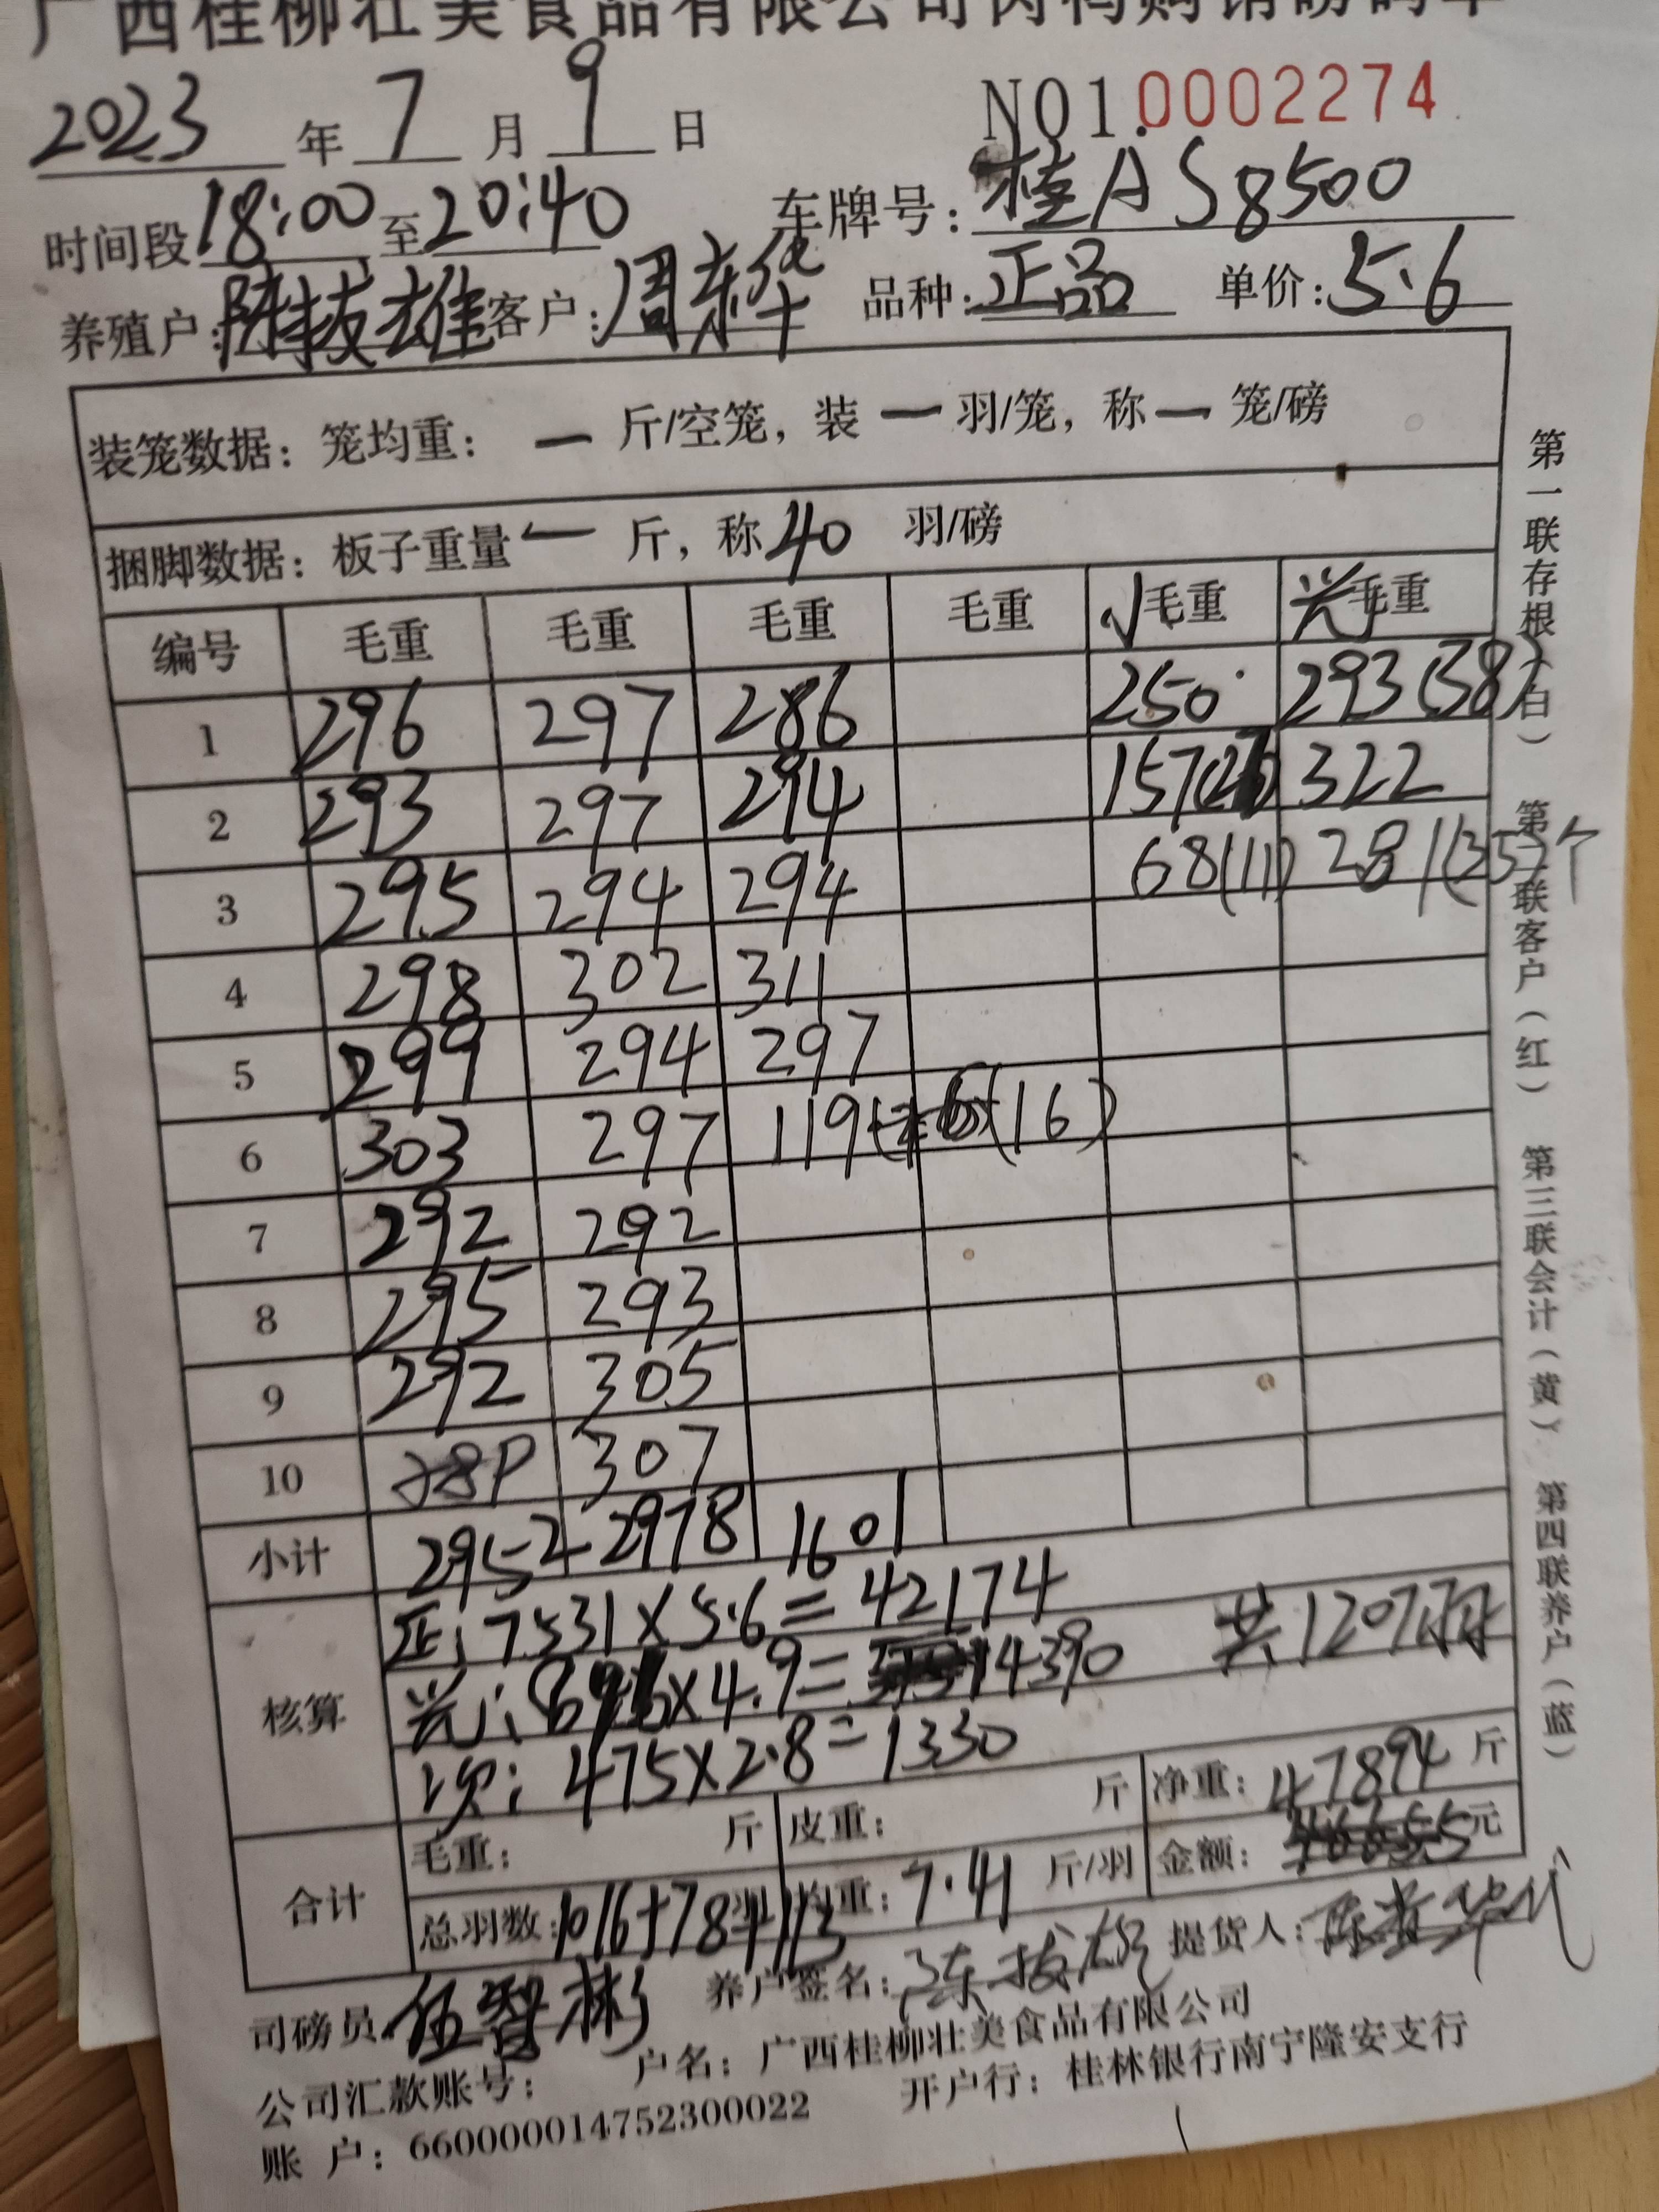 广西桂柳壮美食品有限公司肉鸭购销磅码单
2023 年 7 月 9 日 NO1.0002274
时间段 18:00 至 20:40 车牌号: 桂AS8500
养殖户: 陈拔雄 客户: 周东华 品种: 正品 单价: 5.6
装笼数据: 笼均重: 一 斤/空笼, 装 一 羽/笼, 称 一 笼/磅
捆脚数据: 板子重量 一 斤, 称 40 羽/磅
编号 毛重 毛重 毛重 毛重 小毛重 光毛重
1 296 297 286 250 293(38)
2 293 297 294 157 322
3 295 294 294 68(11) 281(35)个
4 298 302 311
5 299 294 297
6 303 297 119 (16)
7 292 292
8 295 293
9 292 305
10 289 307
小计 2952 2978 1601
核算 正: 7531×5.6=42174 共1207羽
光: 896×4.9= 4390
次: 475×2.8=1330
合计 毛重: 斤 皮重: 斤 净重: 47894 斤
总羽数: 1016+78+113 均重: 7.41 斤/羽 金额: 元
司磅员: 伍智彬 养户签名: 陈拔雄 提货人:
公司汇款账号: 户名: 广西桂柳壮美食品有限公司
账 户: 660000014752300022 开户行: 桂林银行南宁隆安支行
第一联存根(白) 第二联客户(红) 第三联会计(黄) 第四联养户(蓝)